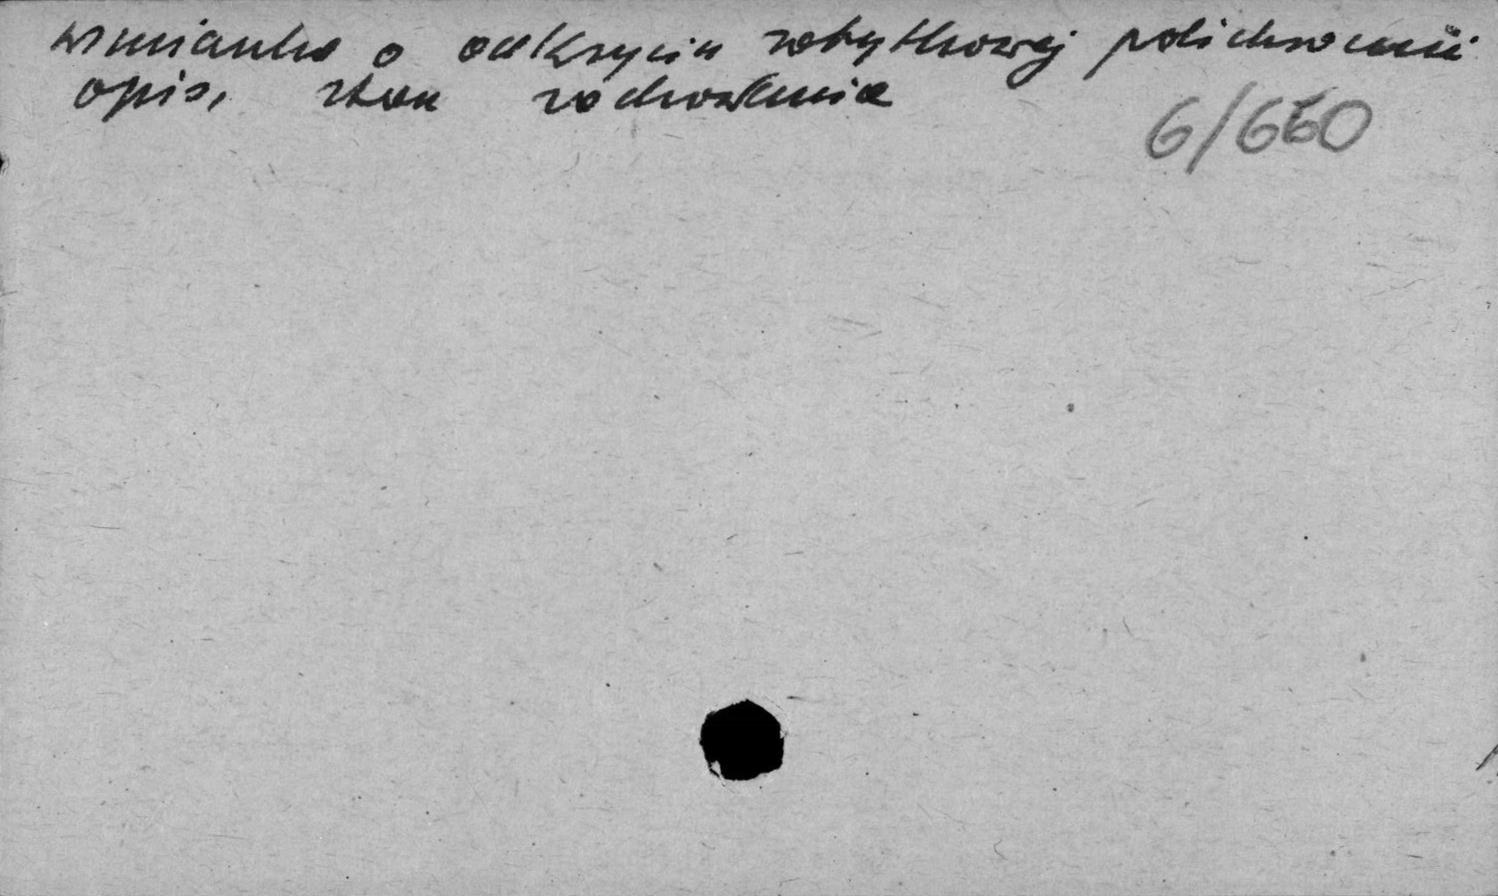 wzmianka o odkryciu zabytkowej polichromii
opis, stan zachowania
6/660